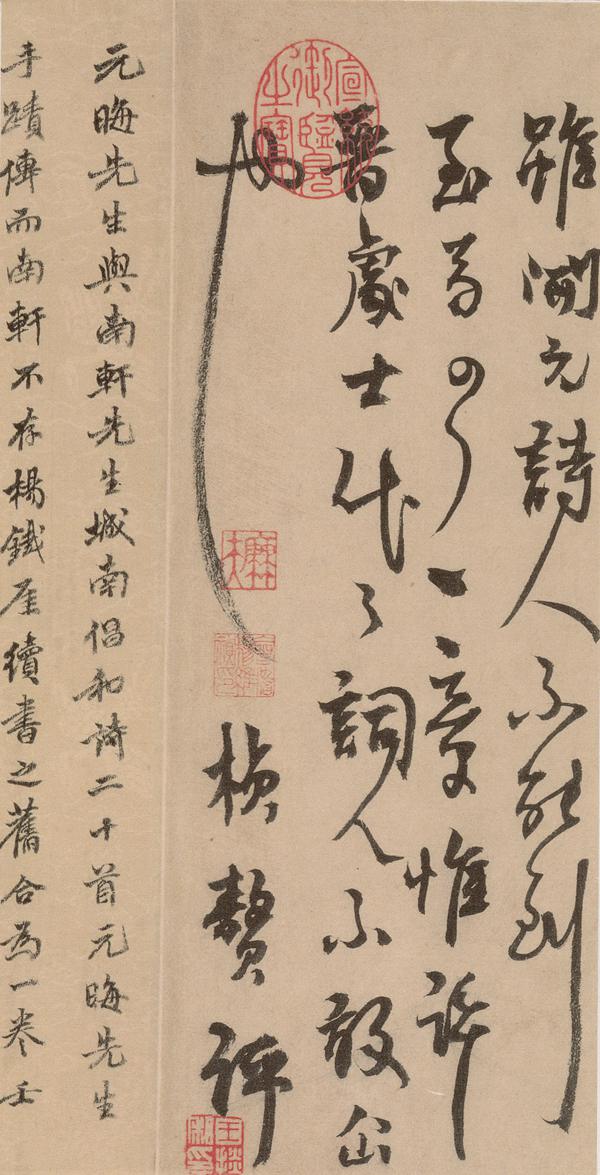 雖開元詩人不能到
至若一章惟許
晉處士詞人不敢企
也
楨贅評
宣統御覽之寶
廉夫
元晦先生與南軒先生城南倡和詩二十首元晦先生
手蹟傳而南軒不存楊鐵厓續書之舊合為一卷壬